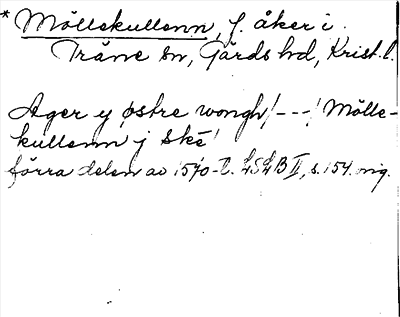 * Möllekullenn, f. åker i
Träne sn, Gärds hd, Krist. l.
Ager y østre wongh /---/ Mölle-
kullenn j Ske
förra delen av 1570-t. LSLB II, s. 154. orig.